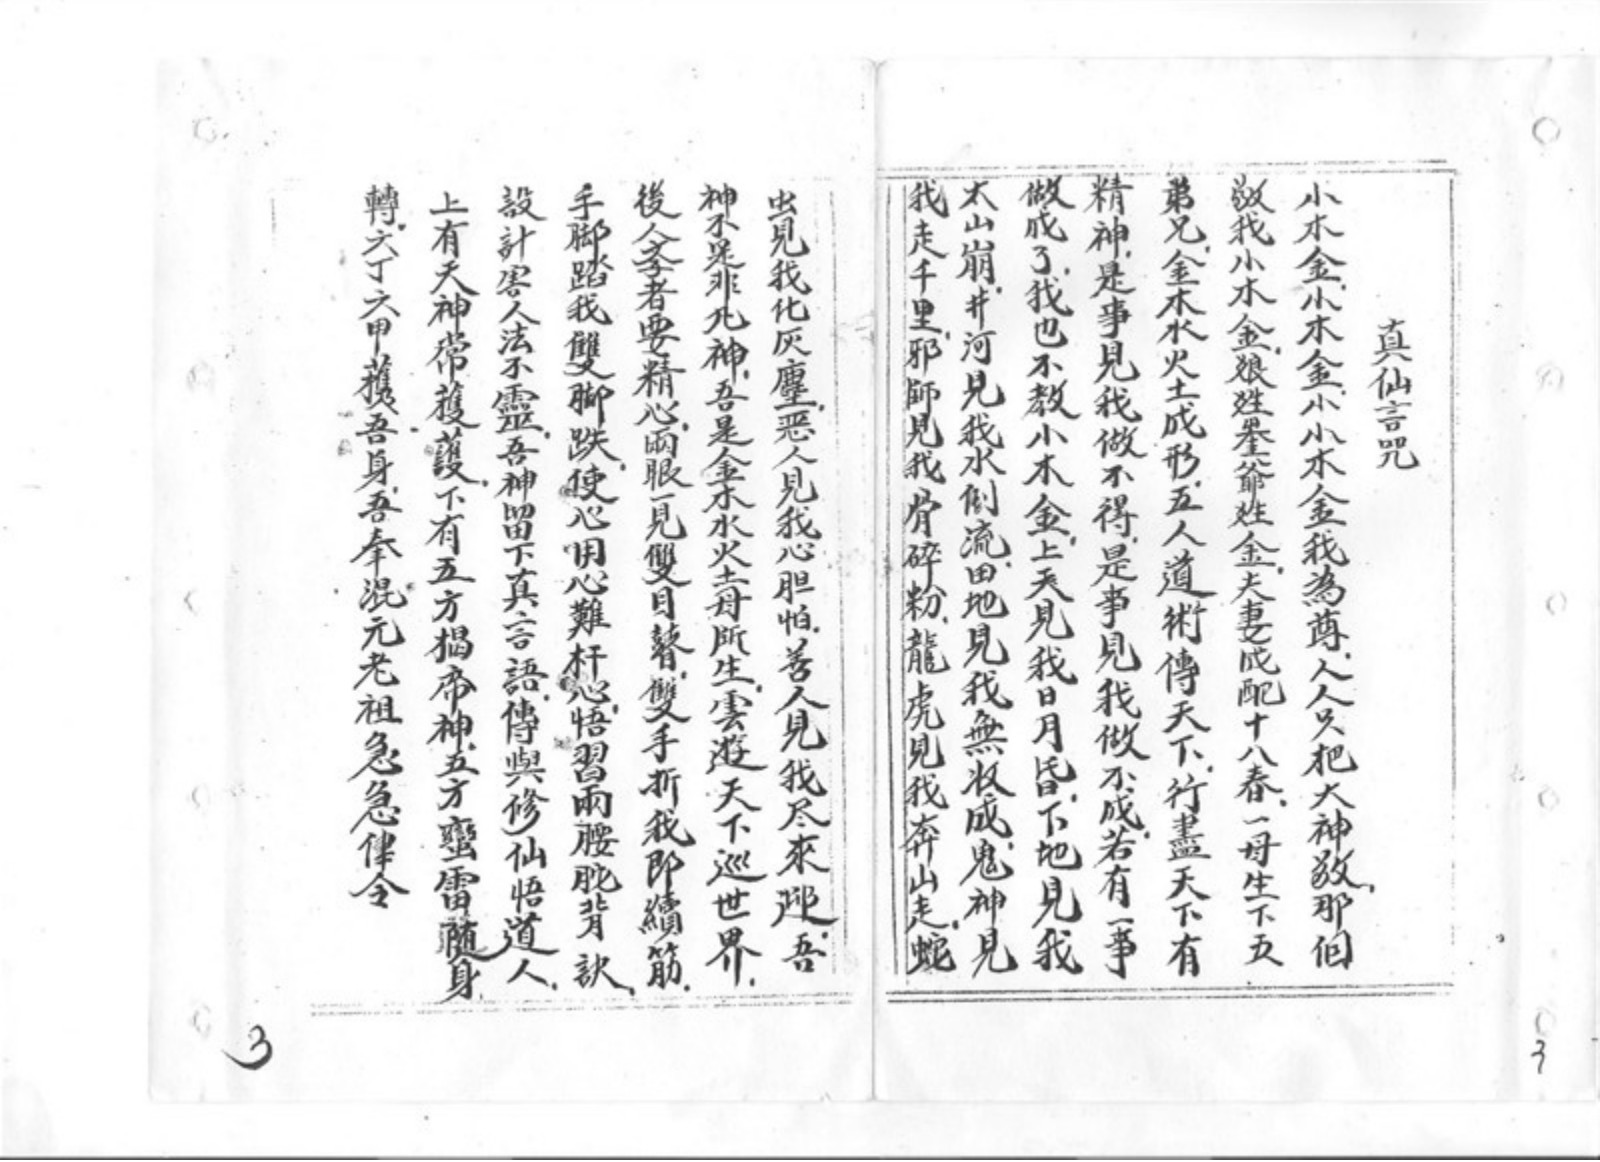 真仙言咒
小木金.小木金.小小木金我為尊.人人只把大神敬.那個
敬我小木金.娘姓墨爺姓金.夫妻成配十八春.一母生下五
弟兄.金木水火土成形.五人道術傳天下.行盡天下有
精神.是事見我做不得.是事見我做不成.若有一事
做成了.我也不教小木金.上天見我日月昏.下地見我
太山崩.井河見我水倒流.田地見我無收成.鬼神見
我走千里.邪師見我骨碎粉.龍虎見我奔山走.蛇
虫見我化灰塵.恶人見我心胆怕.善人見我尽來迎.吾
神不是非凡神.吾是金木水火土母所生.雲遊天下巡世界.
後人孝者要精心.兩眼一見雙目瞽.雙手折我即續筋.
手腳踏我雙腳跌.使心用心難杆心.悟習兩腰駝背訣.
設計害人法不靈.吾神留下真言語.傳與修仙悟道人.
上有天神常獲護.下有五方揭帝神.五方蠻雷隨身
轉.六丁六甲護吾身.吾奉混元老祖急急律令
3
3